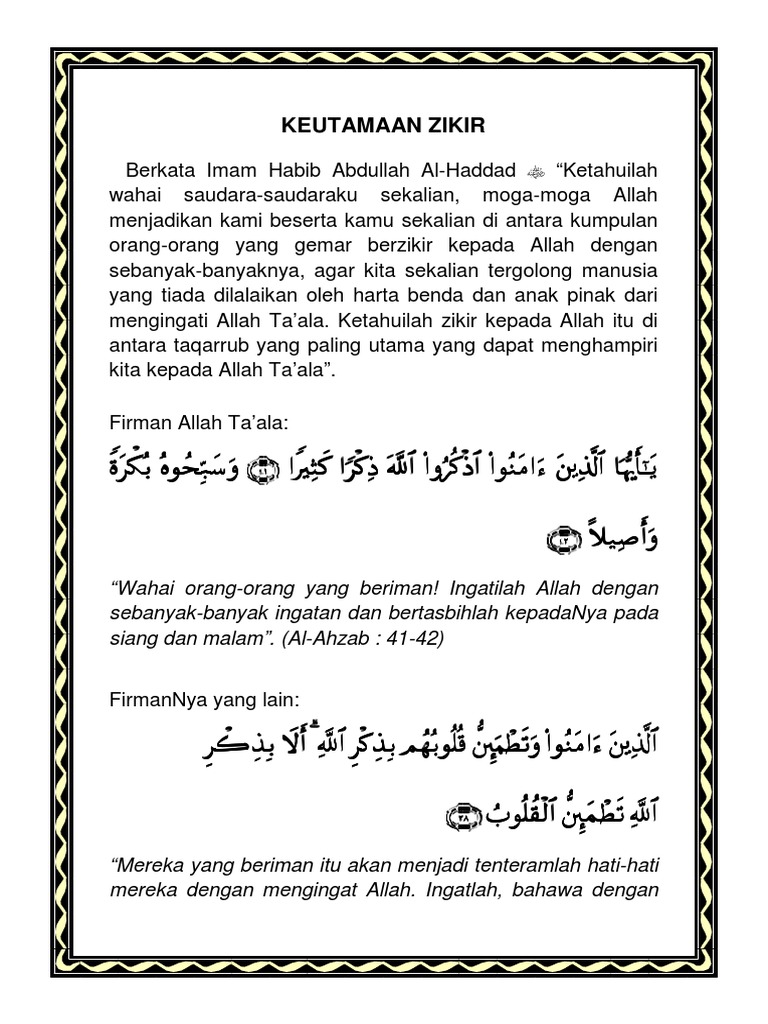 KEUTAMAAN ZIKIR
Berkata Imam Habib Abdullah Al-Haddad “Ketahuilah
wahai saudara-saudaraku sekalian, moga-moga Allah
menjadikan kami beserta kamu sekalian di antara kumpulan
orang-orang yang gemar berzikir kepada Allah dengan
sebanyak-banyaknya, agar kita sekalian tergolong manusia
yang tiada dilalaikan oleh harta benda dan anak pinak dari
mengingati Allah Ta’ala. Ketahuilah zikir kepada Allah itu di
antara taqarrub yang paling utama yang dapat menghampiri
kita kepada Allah Ta’ala”.
Firman Allah Ta’ala:
يَـٰٓأَيُّهَا ٱلَّذِينَ ءَامَنُوا۟ ٱذْكُرُوا۟ ٱللَّهَ ذِكْرًا كَثِيرًا ٤١ وَسَبِّحُوهُ بُكْرَةً
وَأَصِيلاً ٤٢
“Wahai orang-orang yang beriman! Ingatilah Allah dengan
sebanyak-banyak ingatan dan bertasbihlah kepadaNya pada
siang dan malam”. (Al-Ahzab : 41-42)
FirmanNya yang lain:
ٱلَّذِينَ ءَامَنُوا۟ وَتَطْمَئِنُّ قُلُوبُهُم بِذِكْرِ ٱللَّهِ ۗ أَلَا بِذِكْرِ
ٱللَّهِ تَطْمَئِنُّ ٱلْقُلُوبُ ٢٨
“Mereka yang beriman itu akan menjadi tenteramlah hati-hati
mereka dengan mengingat Allah. Ingatlah, bahawa dengan